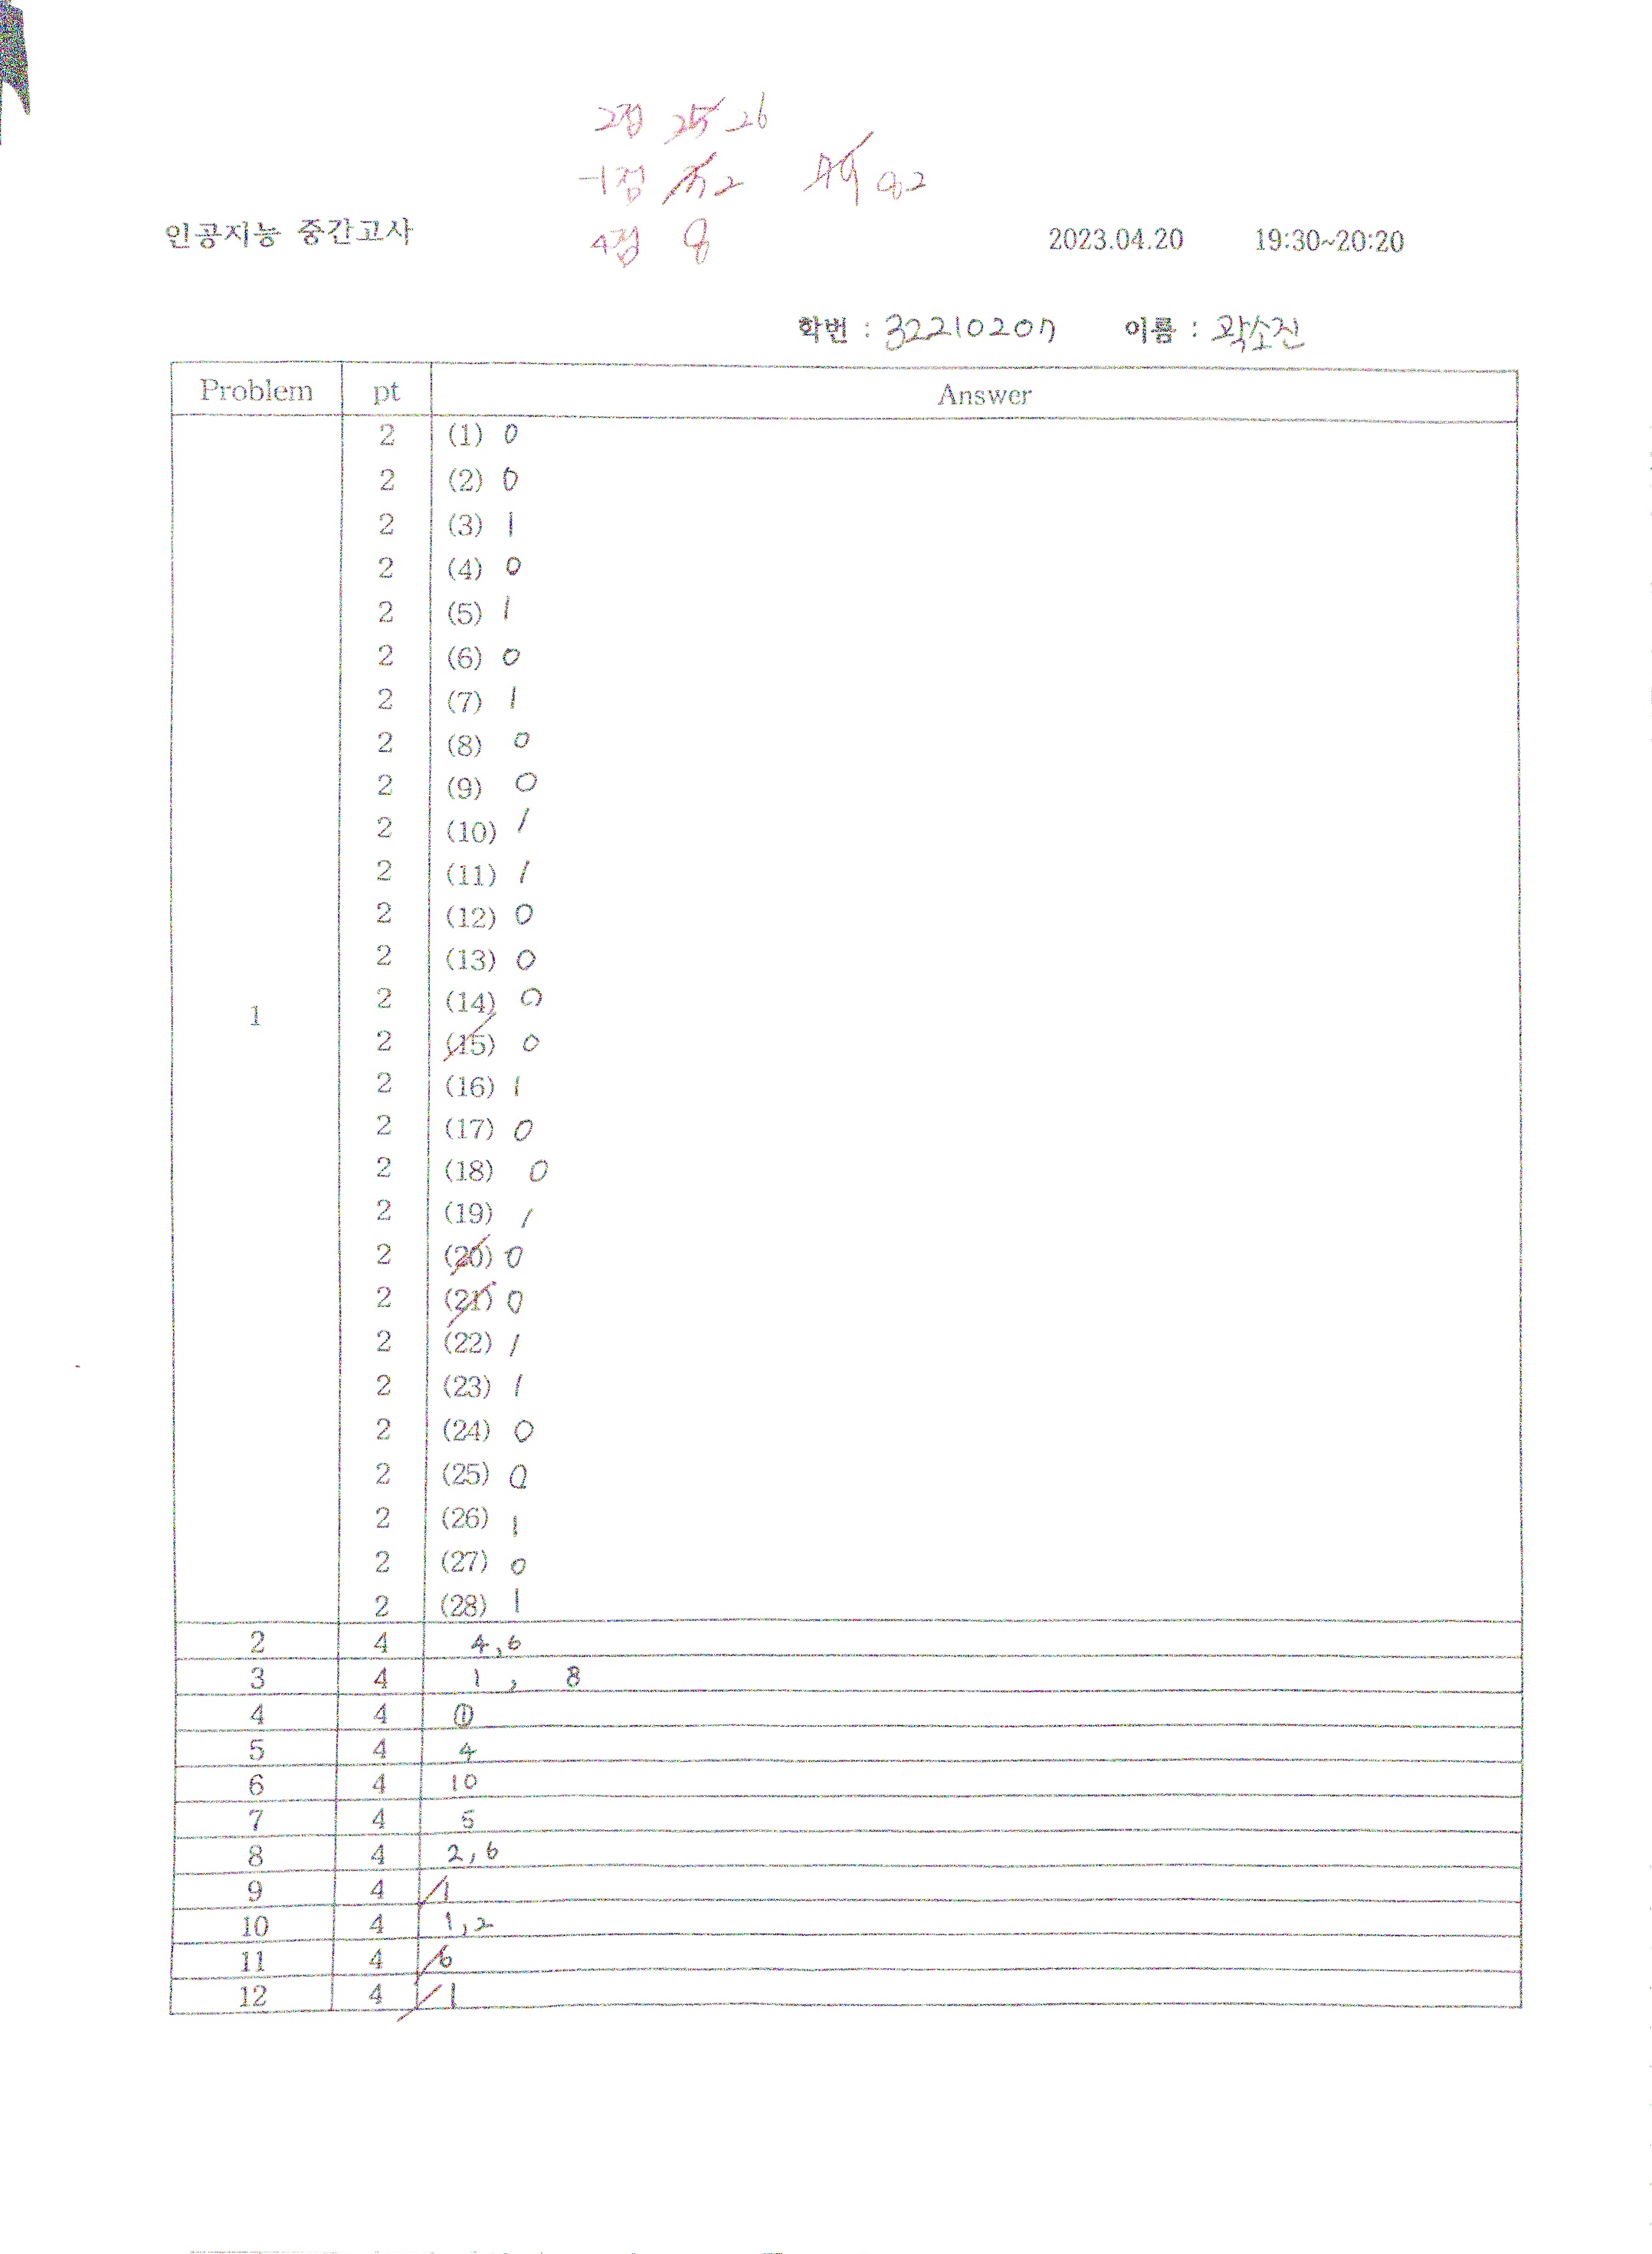 2점 25 26
-1점 2 82
인공지능 중간고사 4점 8 2023.04.20 19:30~20:20
학번 : 32210207 이름 : 곽소진
Problem pt Answer
2 (1) 0
2 (2) 0
2 (3) 1
2 (4) 0
2 (5) 1
2 (6) 0
2 (7) 1
2 (8) 0
2 (9) 0
2 (10) 1
2 (11) 1
2 (12) 0
2 (13) 0
2 (14) 0
1
2 (15) 0
2 (16) 1
2 (17) 0
2 (18) 0
2 (19) 1
2 (20) 0
2 (21) 0
2 (22) 1
2 (23) 1
2 (24) 0
2 (25) 0
2 (26) 1
2 (27) 0
2 (28) 1
2 4 4,6
3 4 1, 8
4 4 ①
5 4 4
6 4 10
7 4 5
8 4 2,6
9 4 1
10 4 1,2
11 4 6
12 4 1